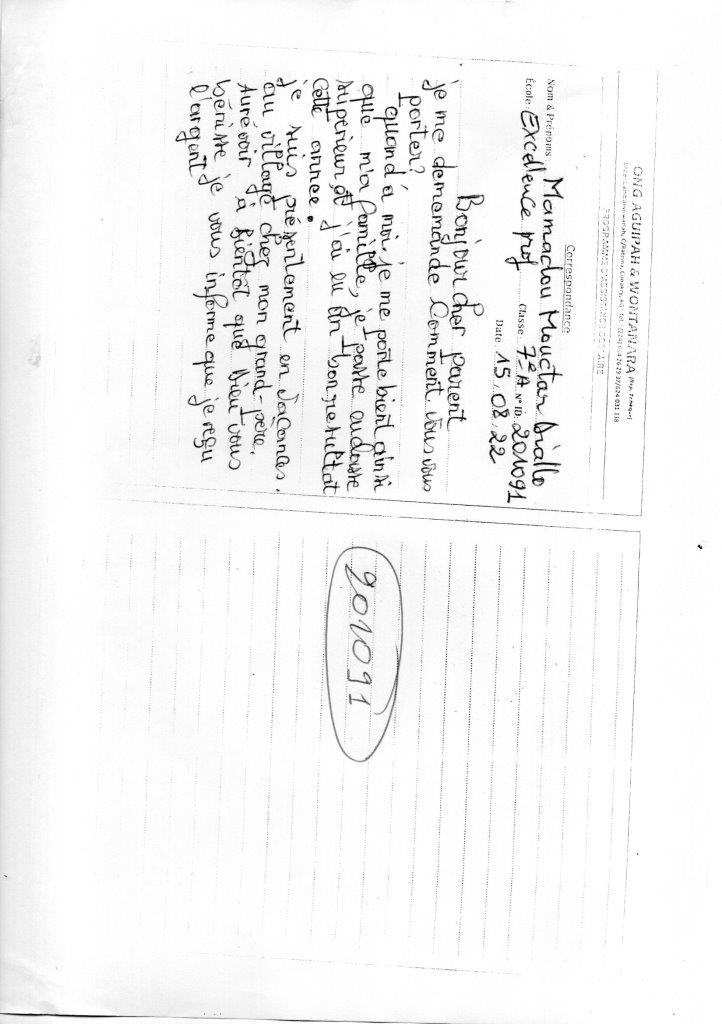 ONG AGUIPAH & WONTANARA
PROGRAMME D'ASSISTANCE SCOLAIRE
Correspondance
Nom & Prénoms Mamadou Mouctar Diallo
École: Excellence prof Classe 7e A. N° ID. 201091
Date 15.08.22
Bonjour cher parent
je me demamânde Comment vous vous
porter?
quand à moi, je me porte bient ainsi
que m'a famille, je
supérieur, et j'ai eu un bon resultat
Cette année.
je suis présentement en vacances.
au village chez mon grand-père.
Aurévoir à Bientôt que Dieu vous
bénisse je vous informe que je reçu
l'argent
201091